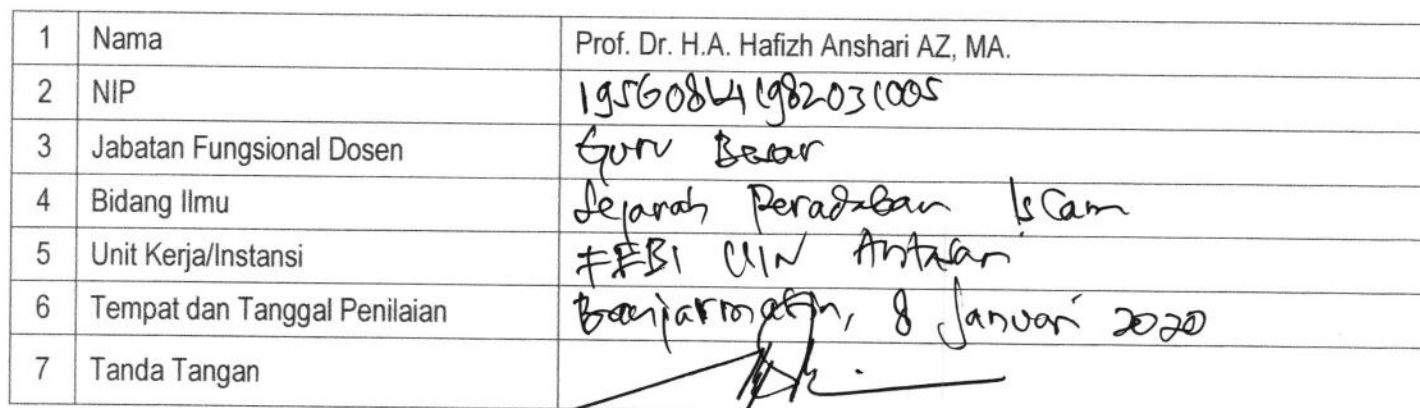 1 Nama Prof. Dr. H.A. Hafizh Anshari AZ, MA.
2 NIP
3 Jabatan Fungsional Dosen Guru Besar
4 Bidang Ilmu Sejarah Peradaban Islam
5 Unit Kerja/Instansi FEBI UIN Antasari
6 Tempat dan Tanggal Penilaian Banjarmasin, 8 Januari 2020
7 Tanda Tangan